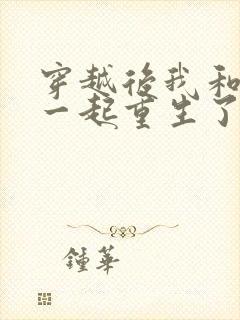 穿越後我和
一起重生了
鍾華